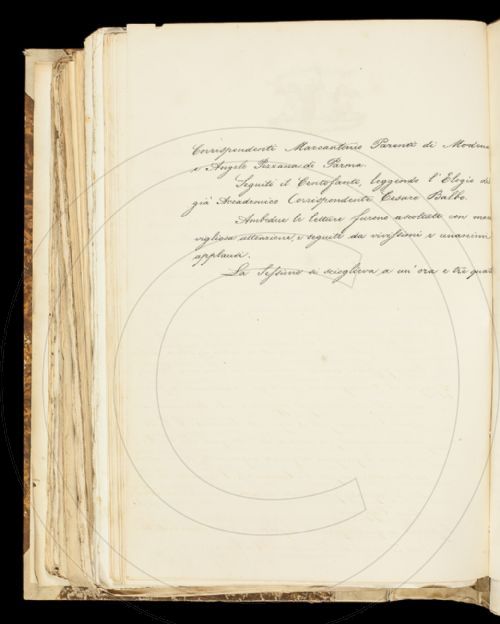 Corrispondenti Marcantonio Parenti di Modena
e Angelo Pezzana di Parma.
Seguitò il Centofanti, leggendo l'Elogio del
già Accademico Corrispondente Cesare Balbo.
Ambedue le letture furono ascoltate con mera
vigliosa attenzione, e seguite da vivissimi e unanimi
applausi.
La Sessione si scioglieva a un'ora e tre quar